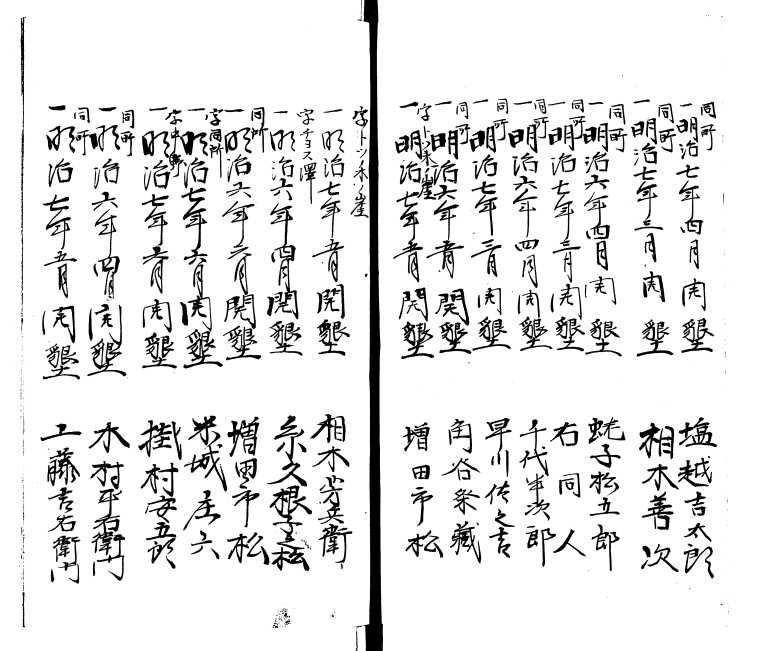 同所
一明治七年四月開墾 塩越吉太郎
同所
一明治七年三月開墾 相木善次
同所
一明治六年四月開墾 蛯子松五郎
同所
一明治七年三月開墾 右同人
同所
一明治六年四月開墾 千代半次郎
同所
一明治七年三月開墾 早川佐之吉
同所
一明治六年五月開墾 角谷祭藏
字トツ木ノ崖
一明治七年五月開墾 増田市松
字トツ木ノ崖
一明治七年五月開墾 相木芳兵衛
字チョス澤
一明治六年四月開墾 糸久根子之松
同所
一明治六年六月開墾 増田市松
字同所
一明治七年六月開墾 米城庄六
字中野
一明治七年六月開墾 掛村安五郎
同所
一明治六年四月開墾 木村平右衛門
同所
一明治七年五月開墾 工藤吉右衛門